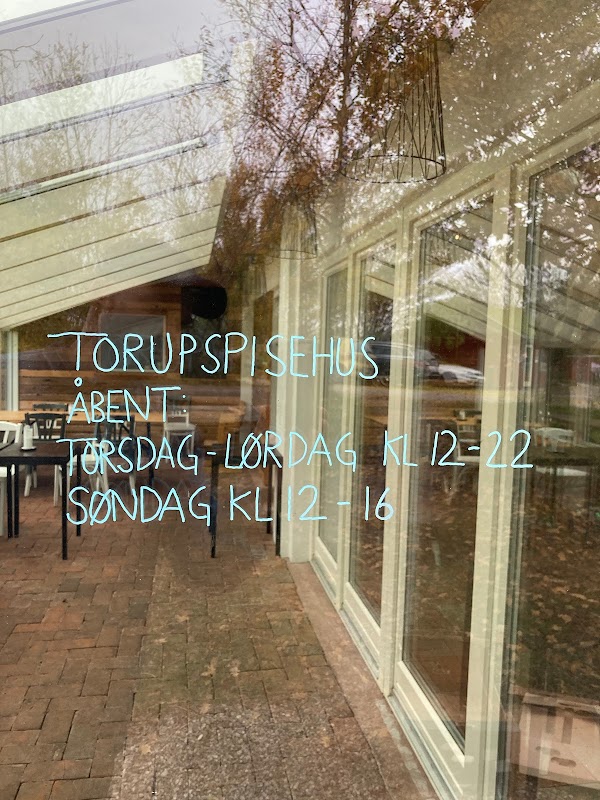 TORUPSPISEHUS
ÅBENT:
TORSDAG - LØRDAG KL 12-22
SØNDAG KL 12 - 16